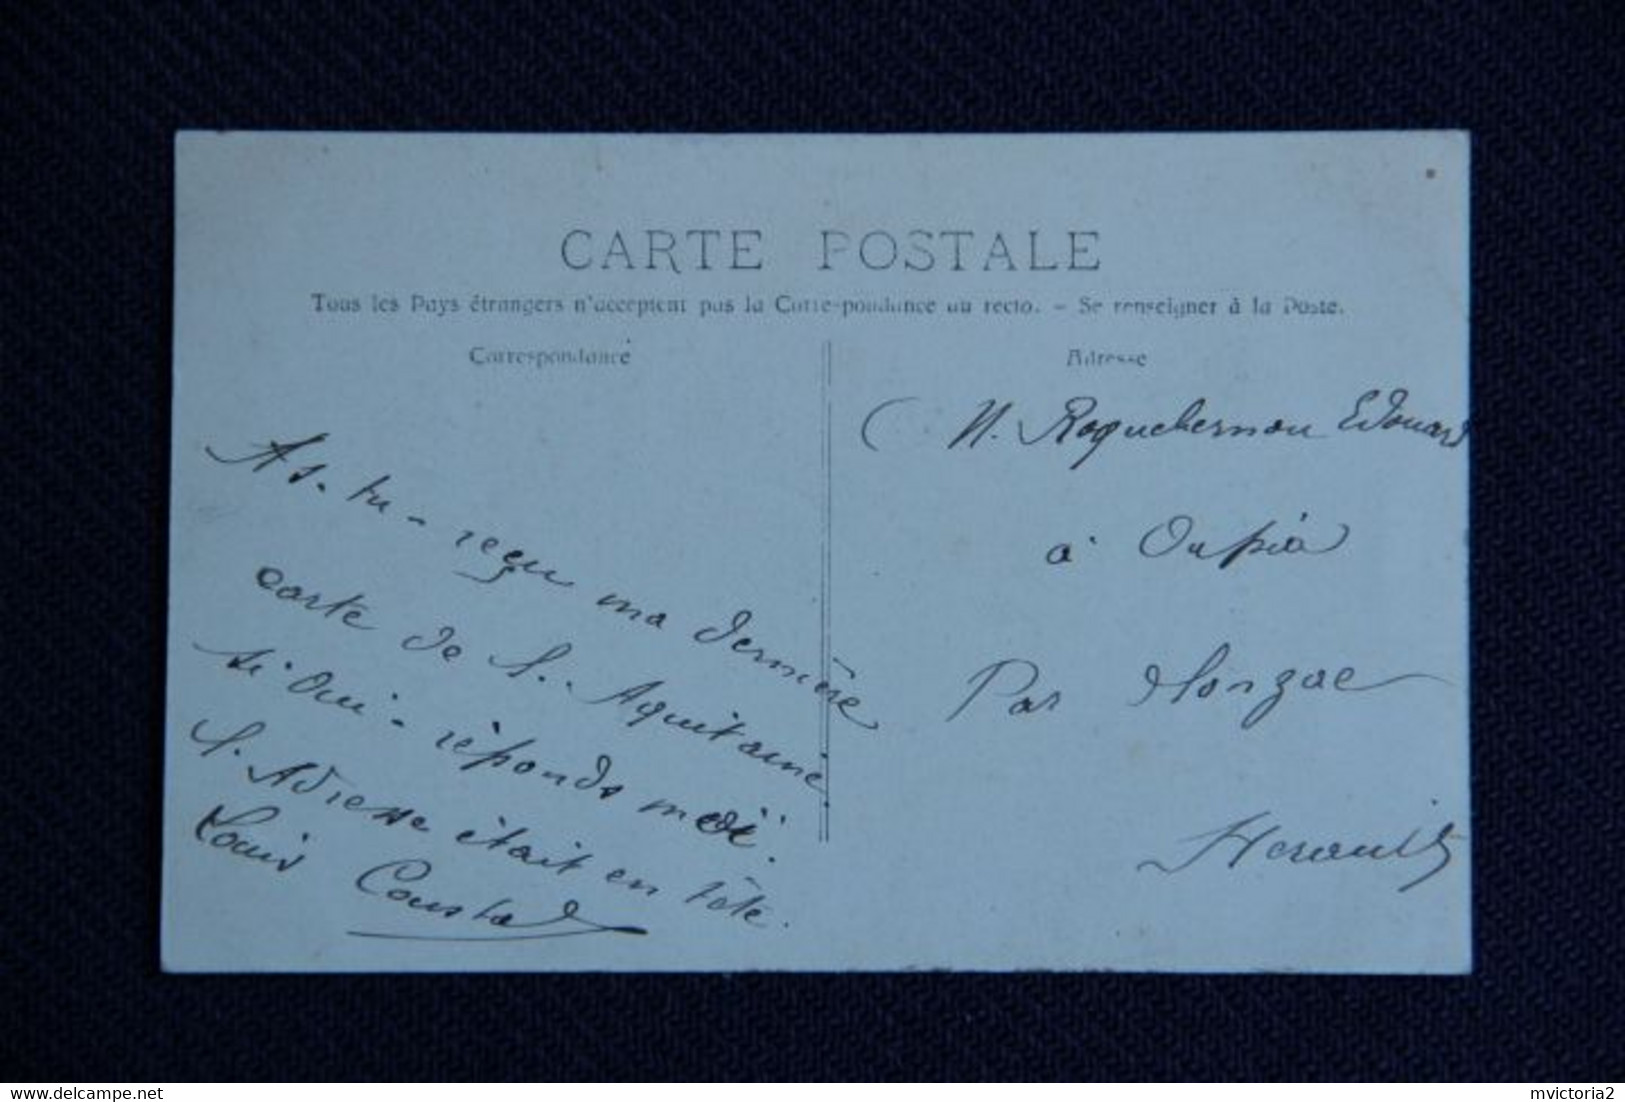 CARTE POSTALE
Tous les Pays étrangers n'acceptent pas la Correspondance au recto. - Se renseigner à la Poste.
Correspondance
As-tu-reçu ma dernière
carte de S. Aquitaine
si oui-réponds moi.
L'Adresse était en tête.
Louis
Adresse
M. Roquebernou Edouard
à Oupia
Par Olonzac
Herault
www.delcampe.net
mvictoria2